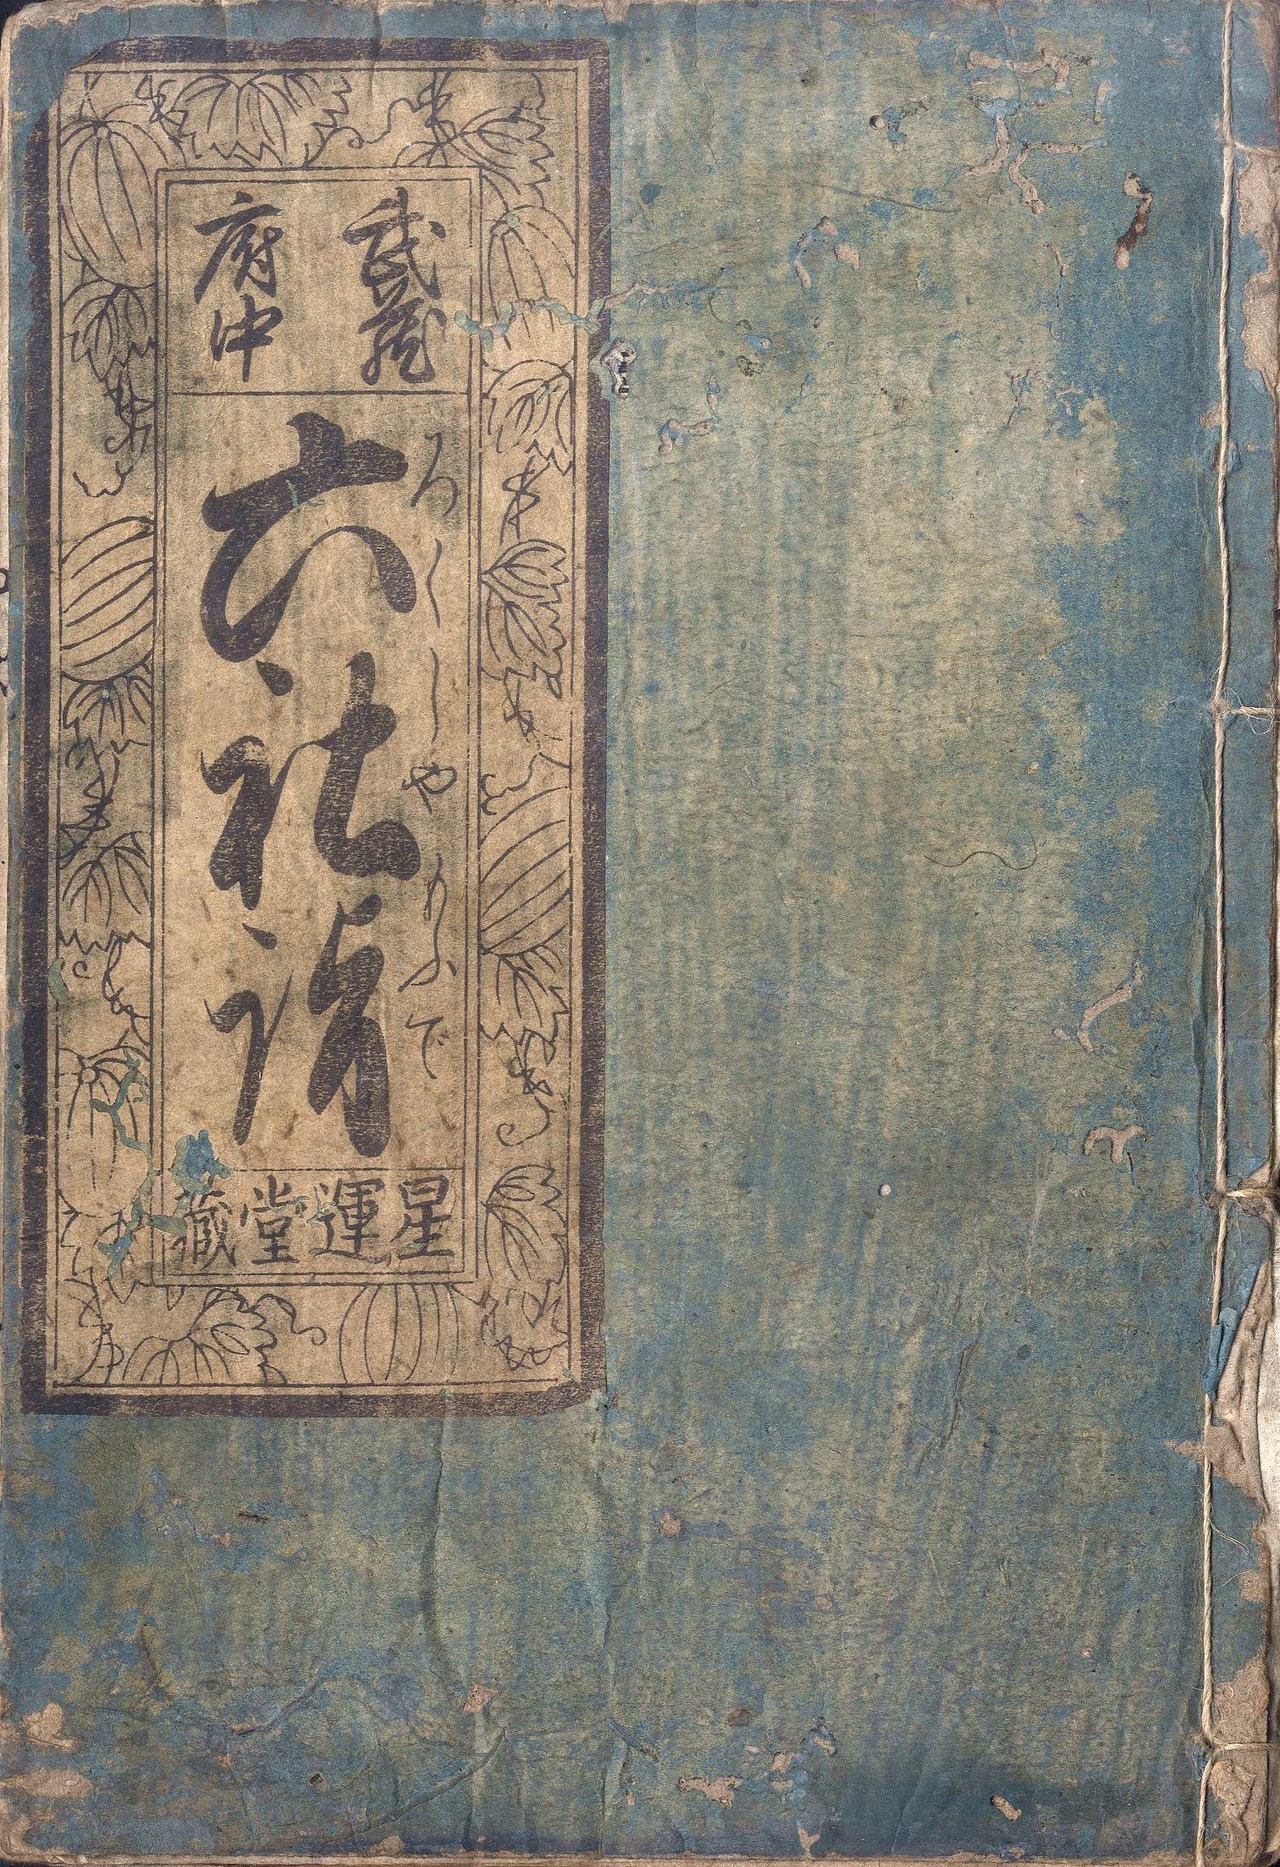 武蔵
府中
六社詣
ろくしやもふで
星運堂蔵